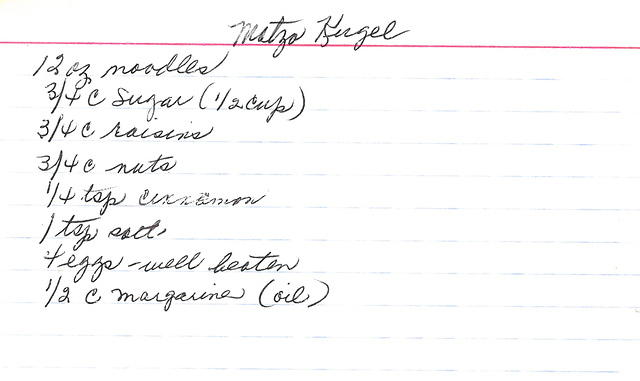 Matzo Kugel
12 oz noodles
3/4 c sugar (1/2 cup)
3/4 c raisins
3/4 c nuts
1/4 tsp cinnamon
1 tsp salt
4 eggs - well beaten
1/2 c margarine (oil)